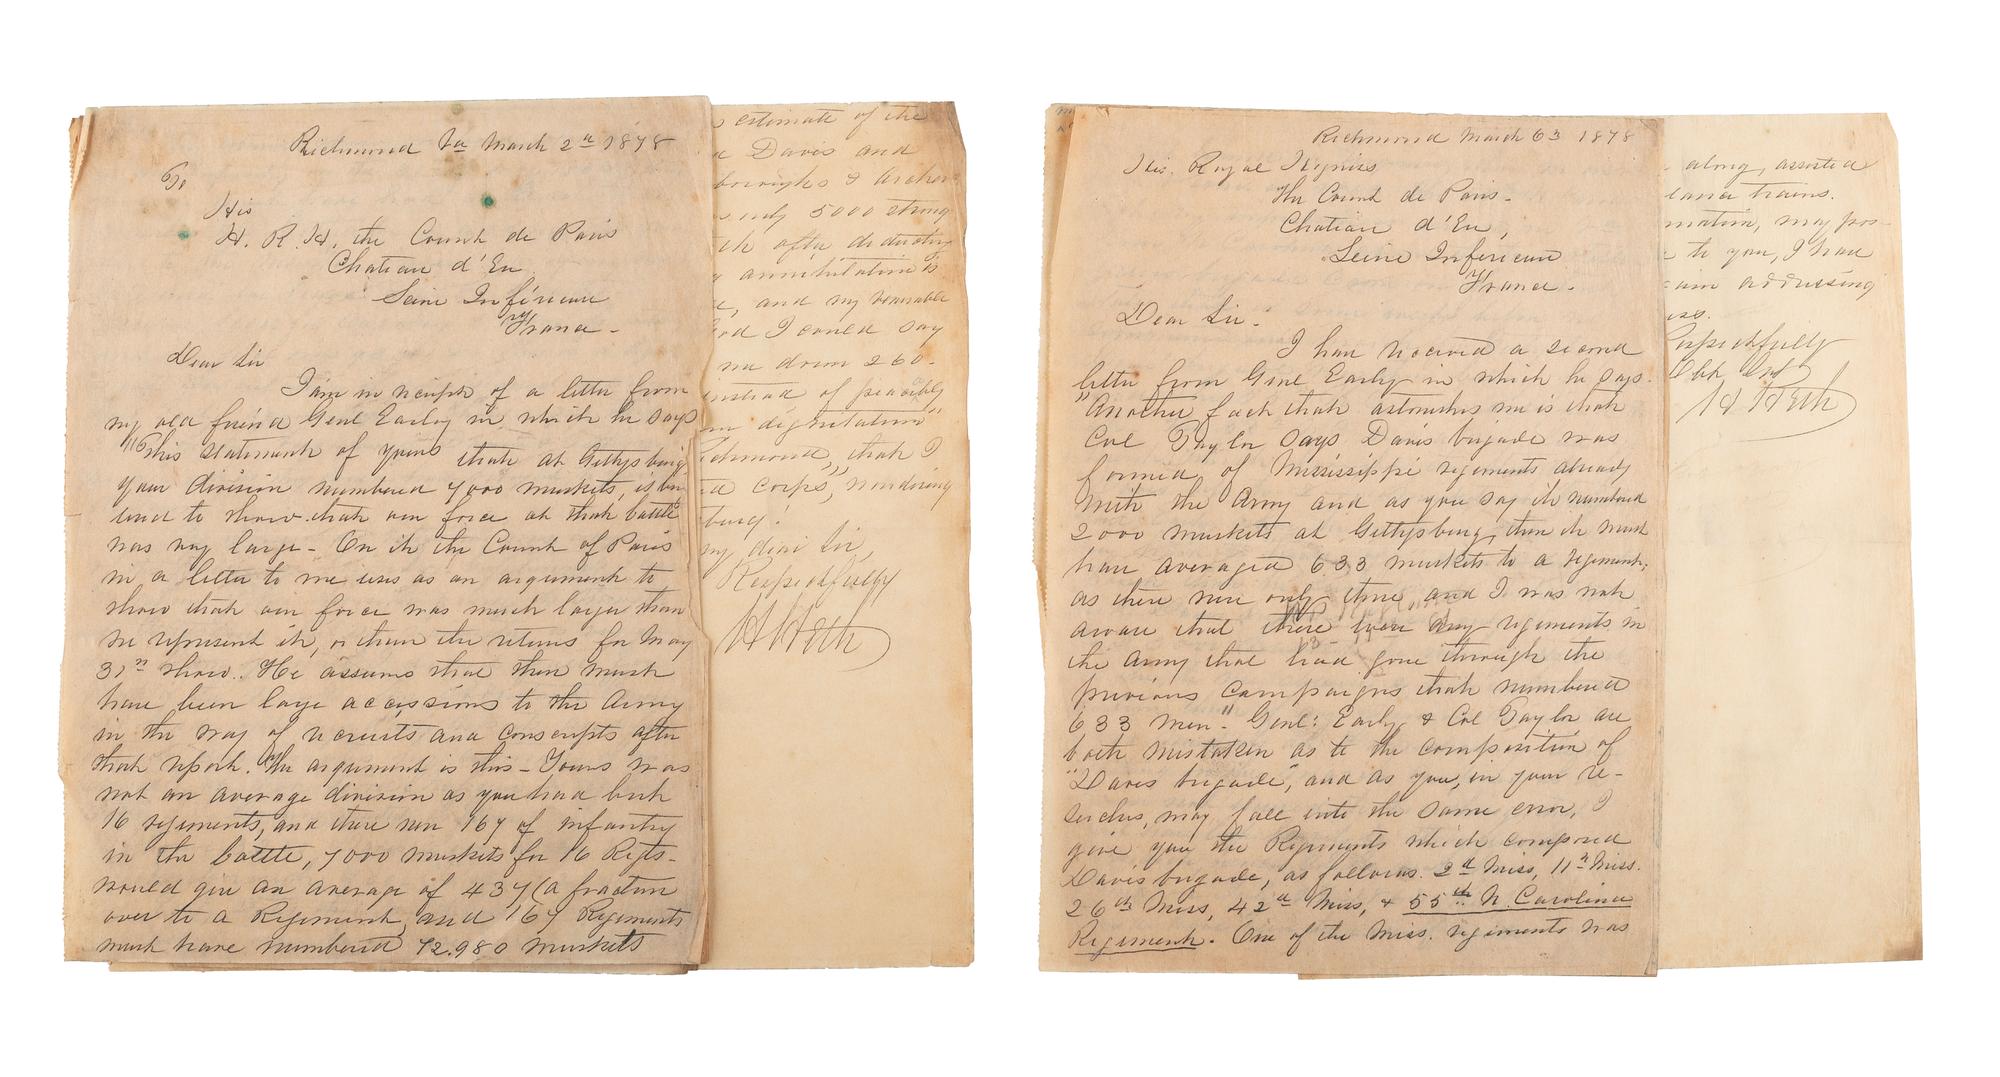 Richmond Va March 2nd 1878
To
His
H. R. H. the Count de Paris
Chateau d'Eu
Seine Inférieure
France -
Dear Sir
I am in receipt of a letter from
my old friend Genl Early in which he says
"This statement of yours that at Gettysburg
your division numbered 7000 muskets, is
used to show that our force at that battle
was very large - On it the Count of Paris
in a letter to me uses as an argument to
show that our force was much larger than
we represent it, or than the returns for May
31st show. He assumes that there must
have been large accessions to the Army
in the way of recruits and conscripts after
that report. The argument is this - Yours was
not an average division as you had but
16 regiments, and there were 167 of infantry
in the battle, 7000 muskets for 16 Regts -
would give an average of 437 (a fraction
over to a Regiment, and 167 Regiments
must have numbered 72.980 muskets
estimate of the
Davis and
& Archer
only 5000 strong
after deducting
annihilation is
, and my venerable
I could say
me down 260-
instead of peaceably
dignitation"
Richmond", that I
corps", wondering
burg!
my dear Sir,
Respectfully
H Heth
Richmond March 63 1878
His. Royal Higniss
The Count de Paris -
Chateau d'Eu,
Seine Inférieure
France -
Dear Sir -
I have received a second
letter from Genl Early in which he says -
"Another fact that astonishes me is that
Col Taylor says Davis brigade was
formed of Mississippi regiments already
with the Army and as you say it numbered
2000 muskets at Gettysburg, then it must
have averaged 633 muskets to a regiment,
as there were only three and I was not
aware that there were any regiments in
the Army that had gone through the
previous campaigns that numbered
633 men." Genl: Early & Col Taylor are
both mistaken as to the composition of
"Davis brigade", and as you, in your re-
serches, may fall into the same error, I
give you the Regiments which composed
Davis brigade, as follows. 2d Miss, 11th Miss.
26th Miss, 42d Miss, & 55th N. Carolina
Regiment. One of the Miss. regiments was
along, assisted
trains.
mation, may pos-
to you, I have
addressing
Respectfully
Obt Svt
H Heth